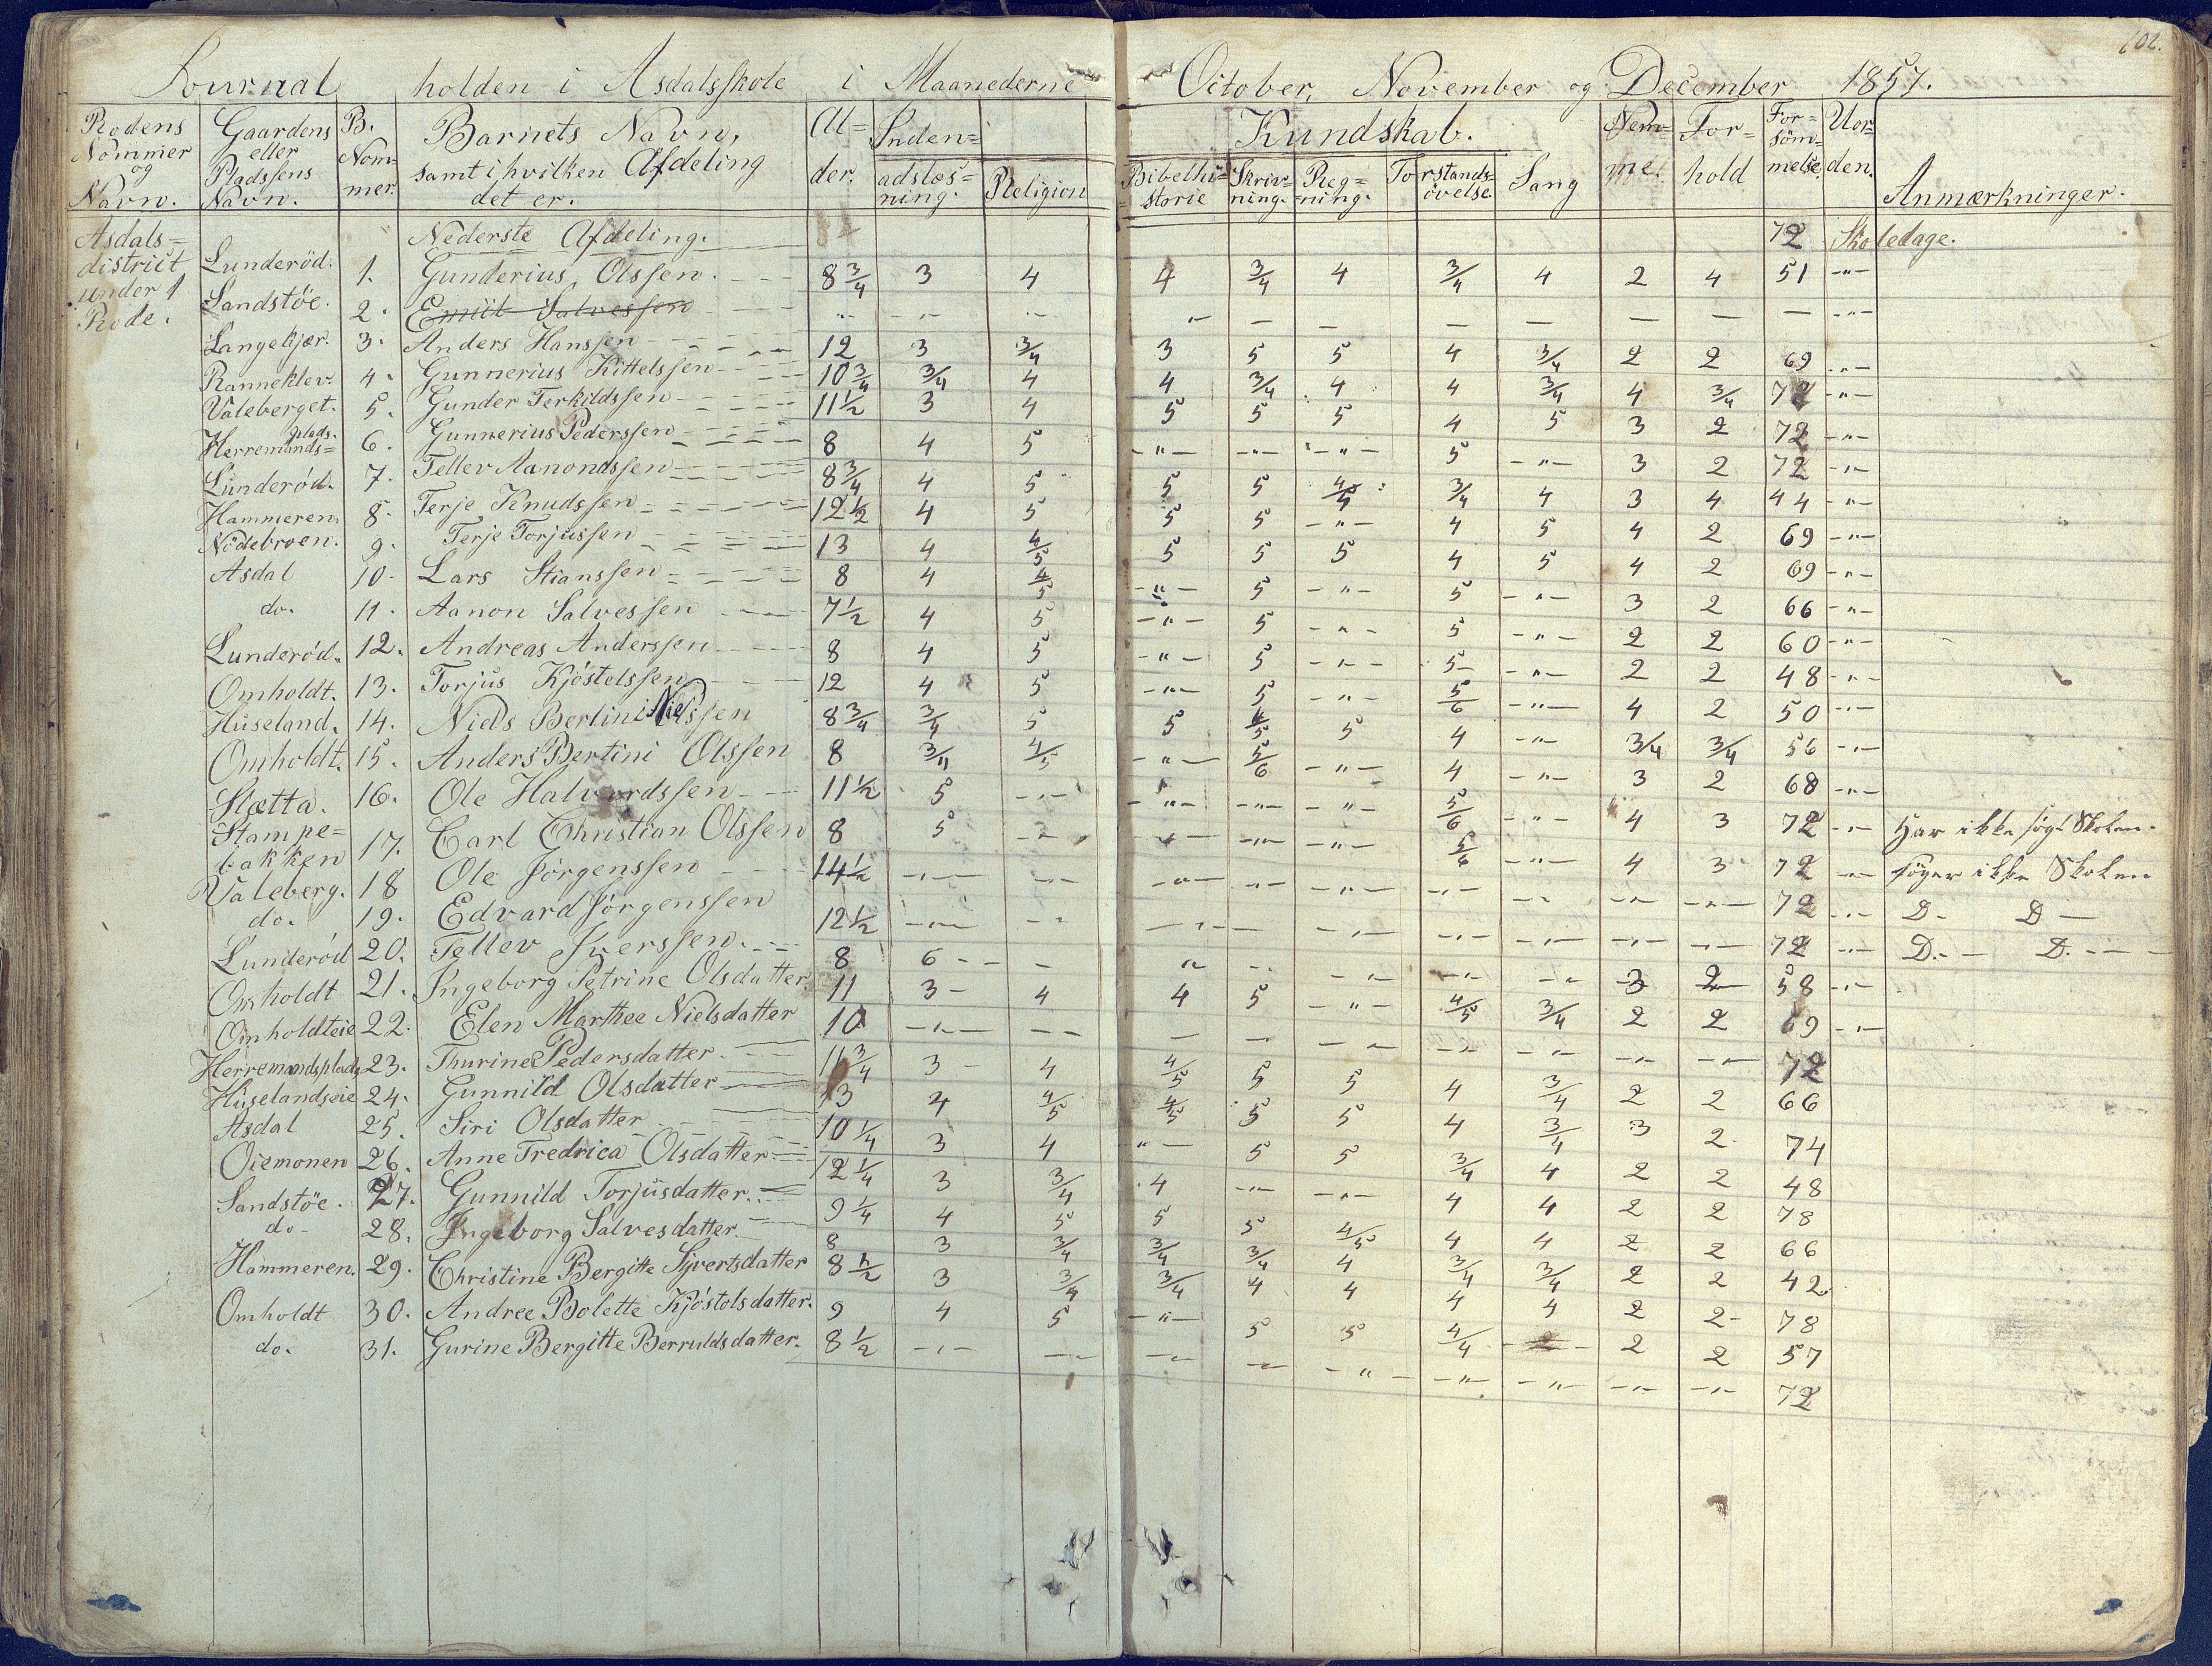 102.
Journal holden i Asdalsskole i Maanederne October, November og December 1857.
Rodens Nommer og Navn. Gaardens eller Pladssens Navn. B. Nommer. Barnets Navn, samt i hvilken Afdeling det er. Alder. Indenadslæsning. Religion Kundskab. Bibelhistorie Skrivning. Regning. Forstandsövelse. Sang Nemme. Forhold Forsömmelse. Uorden. Anmærkninger.
Asdals= Nederste Afdeling. 72 Skoledage.
district Lunderöd. 1. Gunderius Olssen. 8 3/4 3 4 4 3/4 4 3/4 4 2 4 51 -"-
under 1 Sandstöe. 2. Emiil Salvessen -"-
Rode.
Langekjær. 3. Anders Hanssen 12 3 3/4 3 5 5 4 3/4 2 2 69 -"-
Ranneklev. 4. Gunnerius Kittelssen 10 3/4 3/4 4 4 3/4 4 4 3/4 4 3/4 72 -"-
Valeberget. 5. Gunder Terkildssen 11 1/2 3 4 5 5 5 4 5 3 2 72 -"-
Herremands=plads. 6. Gunnerius Pederssen 8 4 5 -"- -"- -"- 5 -"- 3 2 72 -"-
Lunderöd. 7. Tellev Aanondssen 8 3/4 4 5 5 5 4/5 3/4 4 3 4 44 -"-
Hammeren. 8. Terje Knudssen 12 1/2 4 5 5 5 -"- 4 5 4 2 69 -"-
Nödebroen. 9. Terje Torjussen 13 4 4/5 5 5 5 4 5 4 2 69 -"-
Asdal 10. Lars Stianssen 8 4 4/5 -"- 5 -"- 5 -"- 3 2 66 -"-
do. 11. Aanon Salvessen 7 1/2 4 5 -"- 5 -"- 5 -"- 2 2 60 -"-
Lunderöd. 12. Andreas Anderssen 8 4 5 -"- 5 -"- 5 -"- 2 2 48 -"-
Omholdt. 13. Torjus Kjöstelssen 12 4 5 -"- 5 -"- 5/6 -"- 4 2 50 -"-
Huseland. 14. Niels Bertini Nielssen 8 3/4 3/4 5 5 4/5 5 4 -"- 3/4 3/4 56 -"-
Omholdt. 15. Anders Bertini Olssen 8 3/4 4/5 -"- 5/6 -"- 4 -"- 3 2 68 -"-
Slætta. 16. Ole Halvordssen 11 1/2 5 -"- -"- -"- -"- 5/6 -"- 4 3 72 -"- Har ikke sögt Skolen.
Stampe=
bakken 17. Carl Christian Olssen 8 5 -"- -"- -"- -"- 5/6 -"- 4 3 72 -"- söger ikke Skolen
Valeberg. 18 Ole Jörgenssen 14 1/2 -"- -"- -"- -"- -"- -"- -"- -"- -"- 72 -"- D- D-
do. 19. Edvard Jörgenssen 12 1/2 -"- -"- -"- -"- -"- -"- -"- -"- 72 -"- D.- D.-
Lunderöd 20. Tellev Iverssen. 8 6 - - " -"- -"- -"- -"- 3 2 58 -"-
Omholdt 21. Ingeborg Petrine Olsdatter 11 3 4 4 5 -"- 4/5 3/4 2 2 69 -"-
Omholdteie 22. Elen Marthee Nielsdatter 10 -"- -"- - -"- -"- -"- -"- -"- -"- 72
Herremandsplads 23. Thurine Pedersdatter. 11 3/4 3 4 4/5 5 5 4 3/4 2 2 66
Huselandseie 24. Gunnild Olsdatter 13 4 4/5 4/5 5 5 4 3/4 3 2 74
Asdal 25. Siri Olsdatter 10 1/4 3 4 "- 5 5 3/4 4 2 2 48
Oiemonen 26. Anne Fredrica Olsdatter 12 1/4 3 3/4 4 -"- -"- 4 4 2 2 78
Sandstöe. 27. Gunnild Torjusdatter. 9 1/4 4 5 5 5 4/5 4 4 2 2 66
do- 28. Ingeborg Salvesdatter. 8 3 3/4 3/4 3/4 4 3/4 3/4 2 2 42
Hammeren. 29. Christine Bergitte Syvertsdatter 8 1/2 3 3/4 3/4 4 4 4 4 2 2- 78
Omholdt 30. Andree Bolette Kjöstolsdatter. 9 4 5 -"- 5 5 4/4 2 2 57
do. 31. Gurine Bergitte Berruldsdatter. 8 1/2 -"- -"- -"- -"- -"- -"- -"- -"- -"- 72